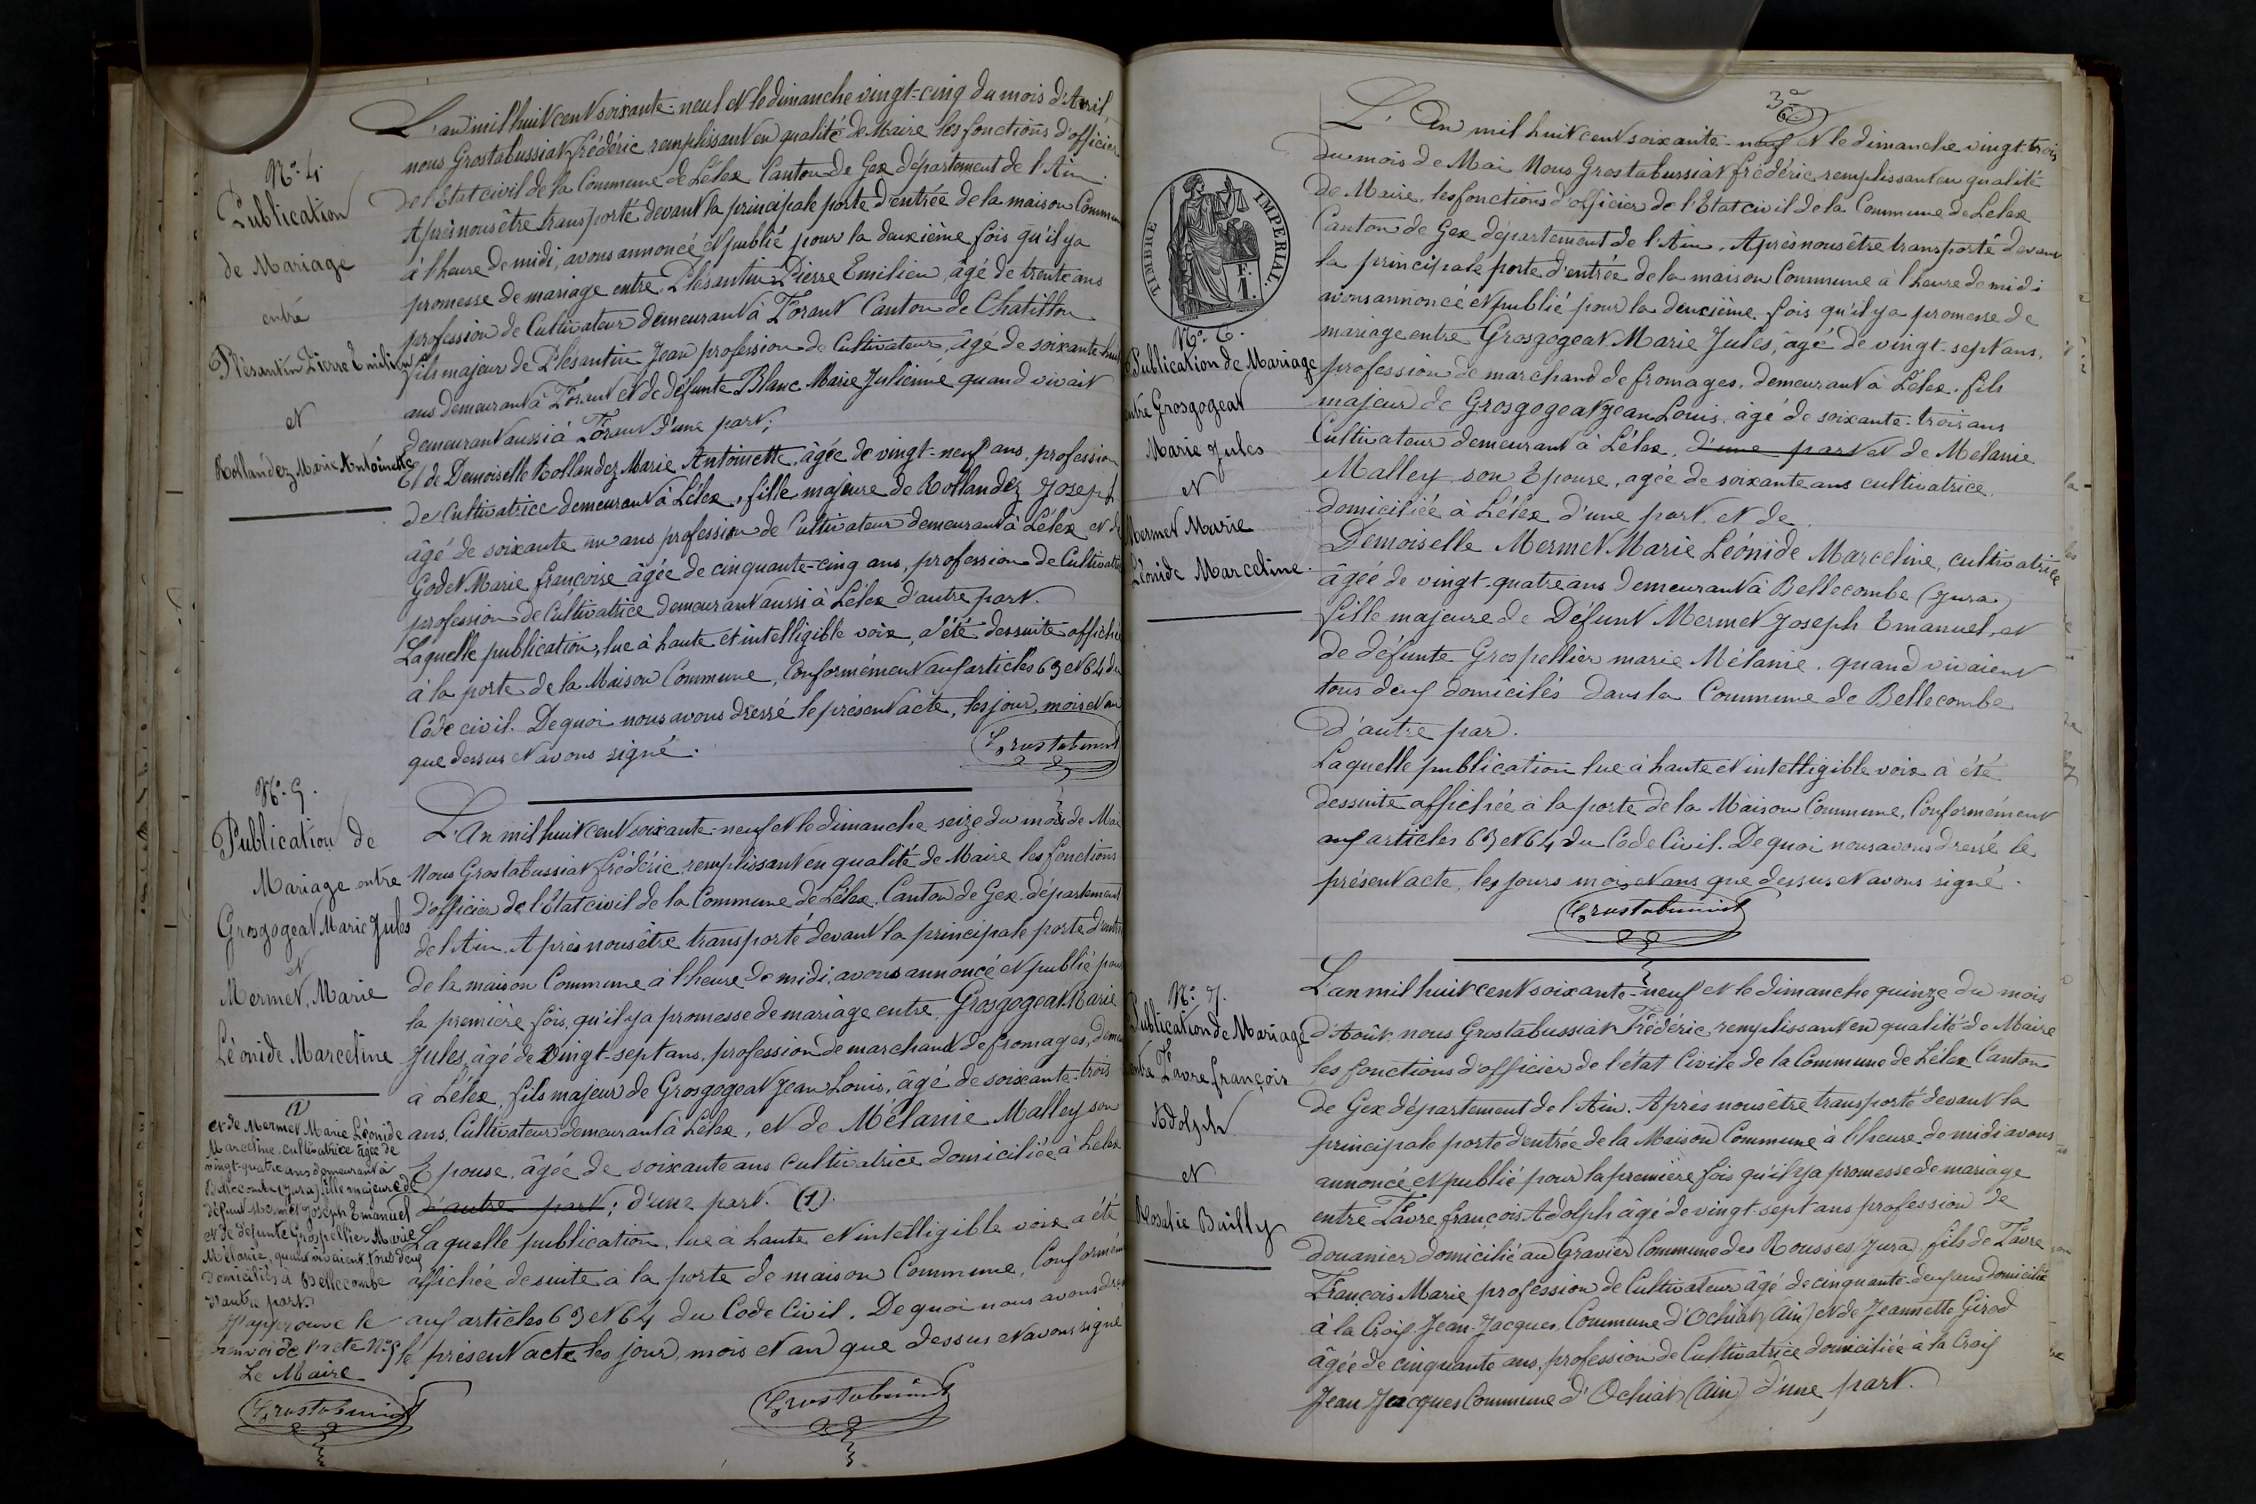 L'an mil huit cent soixante-neuf et le dimanche vingt-cinq du mois d'Avril,
nous Grostabussiat Frédéric remplissant en qualité de Maire les fonctions d'officier
de l'Etat civil de la Commune de Lélex Canton de Gex département de l'Ain.
Après nous être transporté devant la principale porte d'entrée de la maison Commune
à l'heure de midi, avons annoncé et publié pour la deuxième fois qu'il y a
promesse de mariage entre Plésantin Pierre Emilien, âgé de trente ans
profession de Cultivateur demeurant à Forant Canton de Chatillon
fils majeur de Plésantin Jean profession de Cultivateur, âgé de soixante-huit
ans demeurant à Forant et de défunte Blanc Marie Julienne quand vivait
demeurant aussi à Forant d'une part;
Et de Demoiselle Rollandez Marie Antoinette, âgée de vingt-neuf ans, profession
de Cultivatrice demeurant à Lélex, fille majeure de Rollandez Joseph
âgé de soixante un ans profession de Cultivateur demeurant à Lélex et de
Godet Marie françoise âgée de cinquante-cinq ans, profession de Cultivatrice
profession de Cultivatrice demeurant aussi à Lélex d'autre part.
Laquelle publication, lue à haute et intelligible voix, a été dessuite affichée
à la porte de la Maison Commune, Conformément auf articles 63 et 64 du
Code civil. De quoi nous avons dressé le présent acte, les jour, mois et an
que dessus et avons signé.
Grostabussiat
No. 4.
Publication
de Mariage
entre
Plésantin Pierre Emilien
et
Rollandez Marie Antoinette
No. 5.
Publication de
Mariage entre
Grosgogeat Marie Jules
et
Mermet, Marie
Léonide Marceline
L'An mil huit cent soixante-neuf et le dimanche seize du mois de Mai
Nous Grostabussiat frédéric, remplissant en qualité de Maire les fonctions
d'officier de l'état civil de la Commune de Lélex, Canton de Gex, département
de l'Ain. Après nous être transporté devant la principale porte d'entrée
de la maison Commune à l'heure de midi, avons annoncé et publié pour
la première fois, qu'il y a promesse de mariage entre Grosgogeat Marie
Jules, âgé de vingt-sept ans, profession de marchand de fromages, demeu
à Lélex, fils majeur de Grosgogeat Jean Louis, âgé de soixante-trois
ans, Cultivateur demeurant à Lélex, et de Mélanie Malley son
Epouse, âgée de soixante ans cultivatrice domiciliée à Lélex
d'autre part; d'une part. (1).
Laquelle publication, lue à haute et intelligible voix a été
affichée de suite à la porte de maison Commune, Conformém
auf articles 63 et 64 du Code Civil. De quoi nous avons dres
le présent acte les jour, mois et an que dessus et avons signé
Grostabussiat
(1)
et de Mermet Marie Léonide
Marceline, cultivatrice âgée de
vingt-quatre ans demeurant à
Bellecombe (Jura) fille majeure de
défunt Mermet Joseph Emanuel
et de défunte Grospellier Marie
Mélanie, quand vivaient tous deuf
domiciliés à Bellecombe
d'autre part.
J'approuve le
renvoi de l'acte No 5
Le Maire
Grostabussiat
3e
L'An mil huit cent soixante-neuf et le dimanche vingt-trois
du mois de Mai Nous Grostabussiat frédéric remplissant en qualité
de Maire, les fonctions d'officier de l'Etat civil de la Commune de Lélex
Canton de Gex département de l'Ain. Après nous être transporté devant
la principale porte d'entrée de la maison Commune à l'heure de midi
avons annoncé et publié pour la deuxième fois qu'il y a promesse de
mariage entre Grosgogeat Marie Jules, âgé de vingt-sept ans,
profession de marchand de fromages, demeurant à Lélex, fils
majeur de Grosgogeat Jean Louis, âgé de soixante-trois ans
Cultivateur demeurant à Lélex, d'une part et de Mélanie
Malley son Epouse, agée de soixante ans cultivatrice,
domiciliée à Lélex d'une part, et de
Demoiselle Mermet Marie Léonide Marceline, cultivatrice
âgée de vingt-quatre ans demeurant à Bellecombe (Jura)
fille majeure de Défunt Mermet Joseph Emanuel, et
de défunte Grospellier marie Mélanie, quand vivaient
tous deuf domiciliés dans la Commune de Bellecombe
d'autre par.
Laquelle publication lue à haute et intelligible voix à été
dessuite affichée à la porte de la Maison Commune, Conformément
auf articles 63 et 64 du Code Civil. De quoi nous avons dressé le
présent acte, les jours mois et ans que dessus et avons signé.
Grostabussiat
TIMBRE IMPERIAL.
No. 6.
Publication de Mariage
entre Grosgogeat
Marie Jules
et
Mermet Marie
Léonide Marceline.
No. 7.
Publication de Mariage
entre Favre françois
Adolph
et
Rosalie Bailly
L'an mil huit cent soixante-neuf et le dimanche quinze du mois
d'Août, nous Grostabussiat Frédéric, remplissant en qualité de Maire
les fonctions d'officier de l'état Civile de la Commune de Lélex Canton
de Gex département de l'Ain. Après nous être transporté devant la
principale porte d'entrée de la Maison Commune à l'heure de midi avons
annoncé et publié pour la première fois qu'il y a promesse de mariage
entre Favre françois Adolph âgé de vingt-sept ans profession de
douanier domicilié au Gravier Commune des Rousses (Jura) fils de Favre
François Marie profession de Cultivateur âgé de cinquante-deuf ans domicilié
à la Croif Jean-Jacques, Commune d'Ochiat (Ain) et de Jeannette Girod
âgée de cinquante ans, profession de Cultivatrice domiciliée à la Croif
Jean Jacques Commune d'Ochiat (Ain) d'une part.